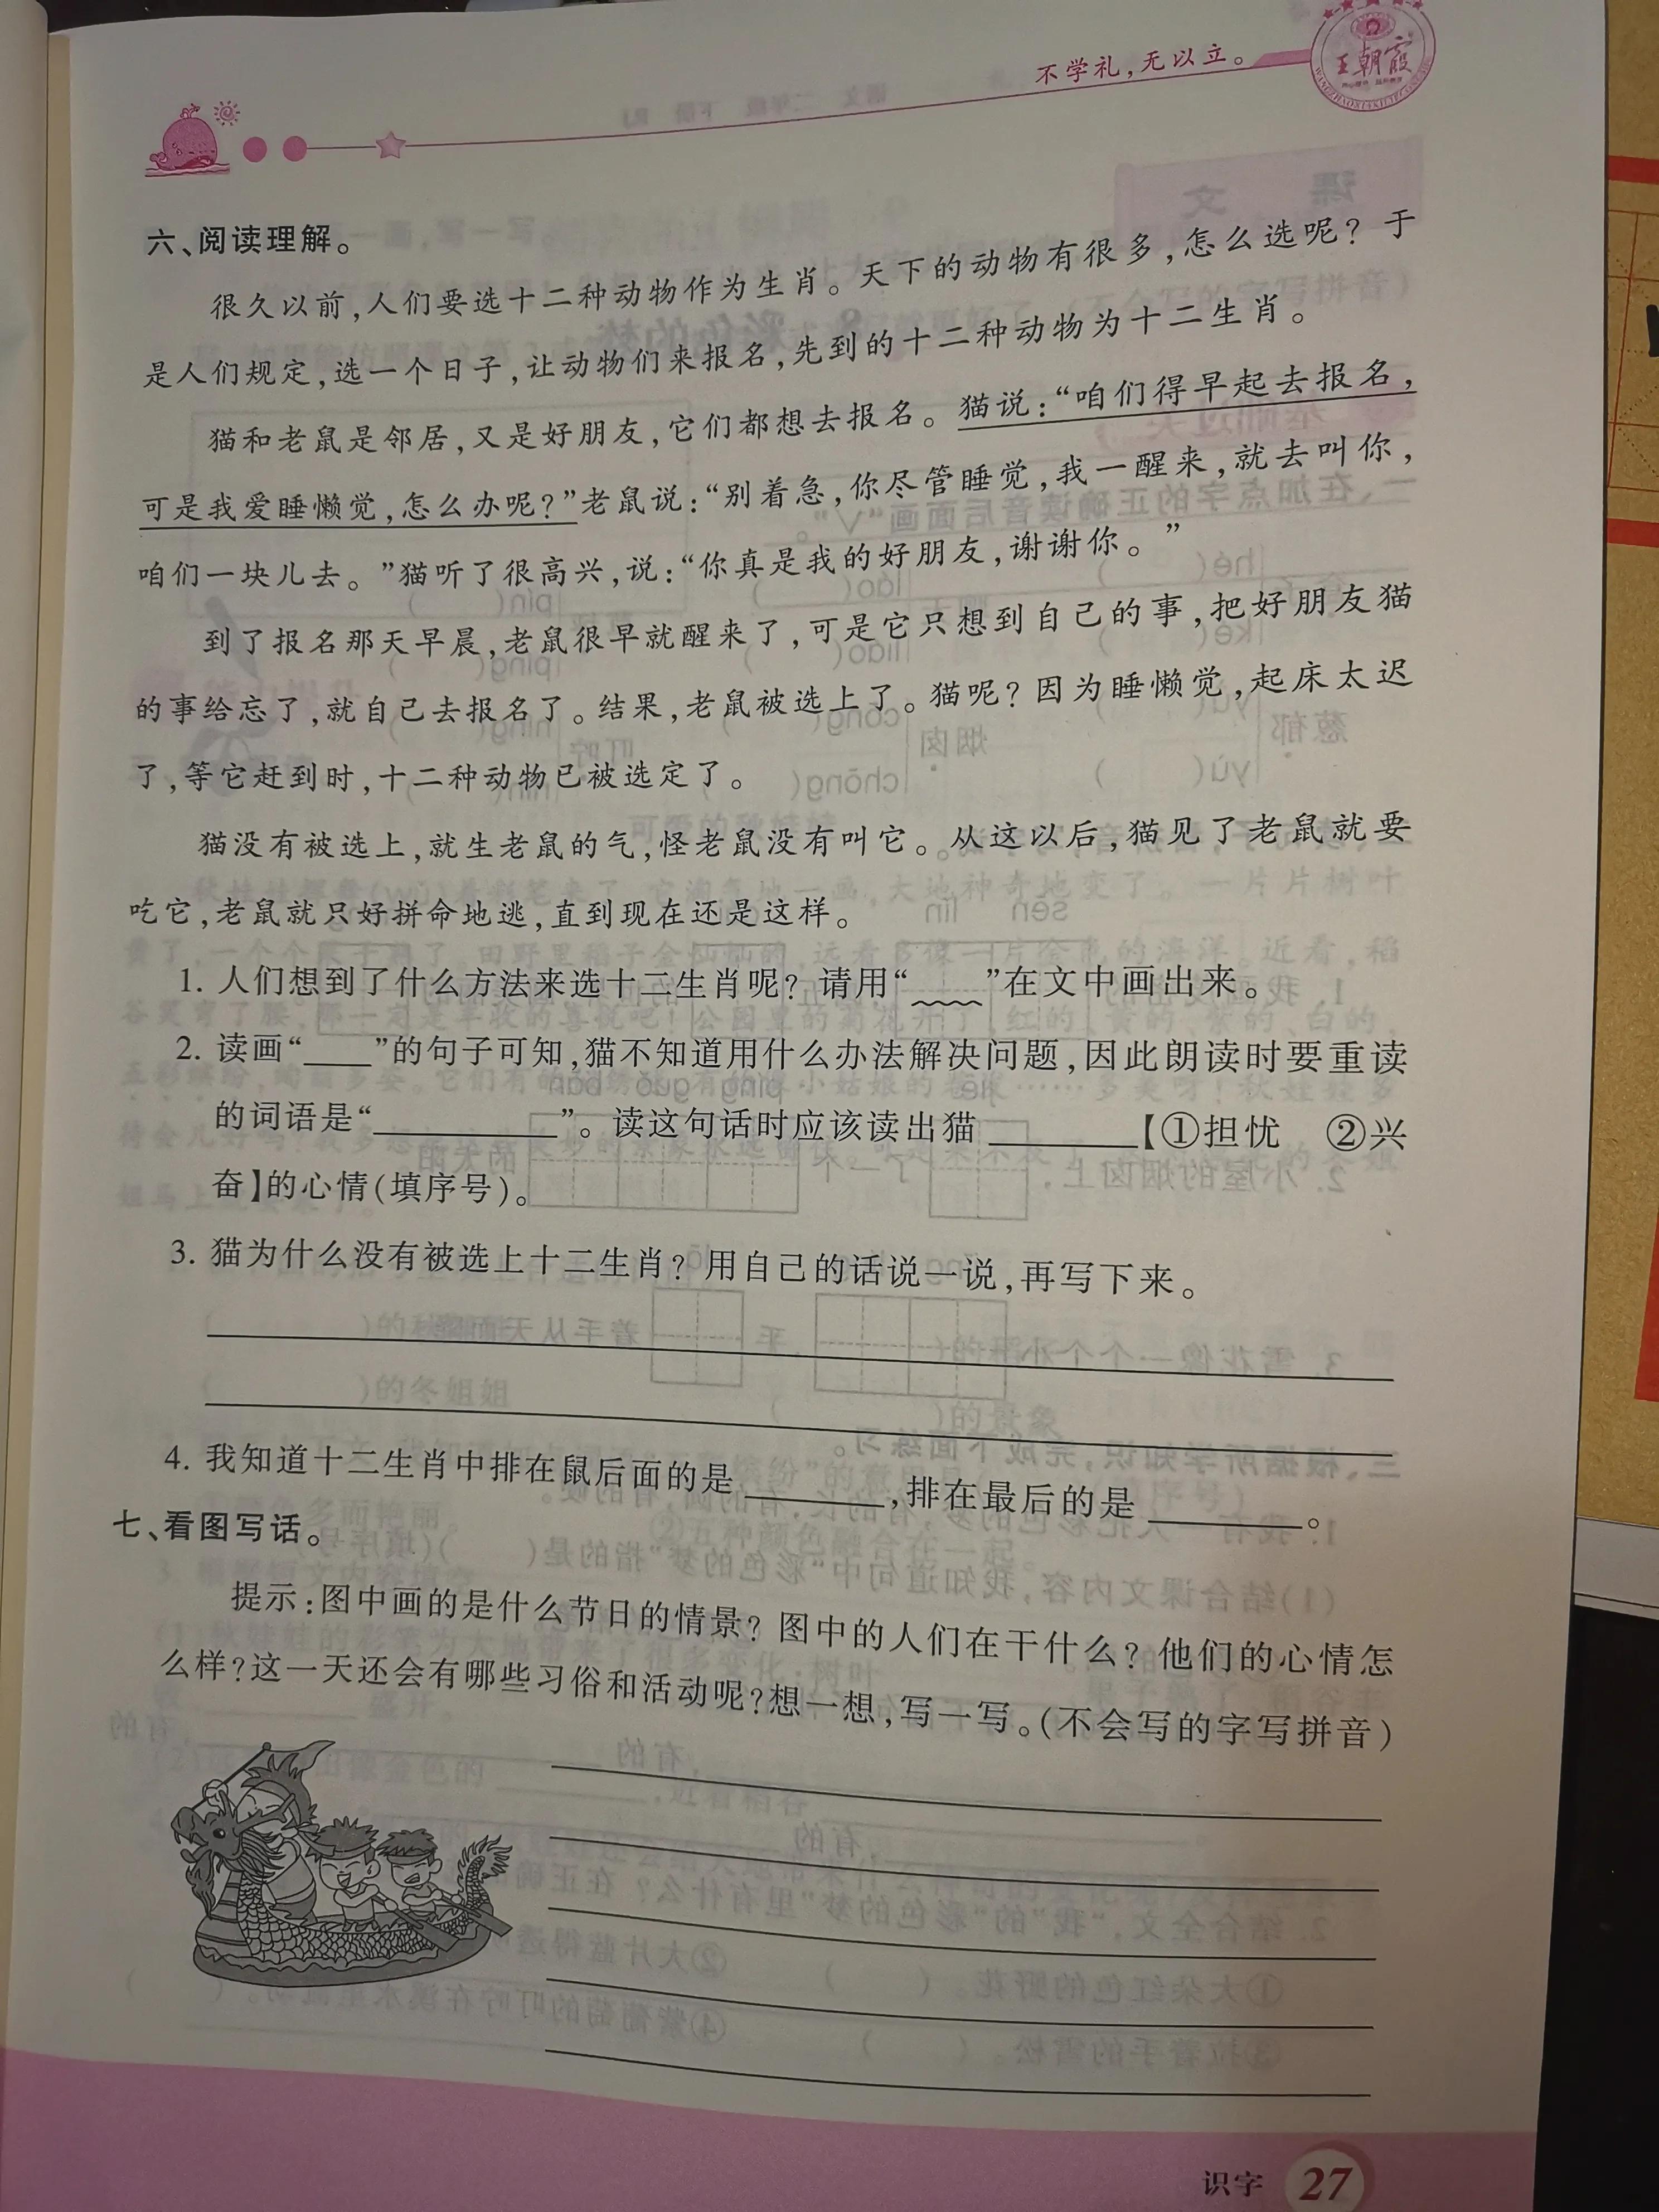 不学礼,无以立。
王朝霞
六、阅读理解。
很久以前,人们要选十二种动物作为生肖。天下的动物有很多,怎么选呢?于
是人们规定,选一个日子,让动物们来报名,先到的十二种动物为十二生肖。
猫和老鼠是邻居,又是好朋友,它们都想去报名。猫说:“咱们得早起去报名,
可是我爱睡懒觉,怎么办呢?”老鼠说:“别着急,你尽管睡觉,我一醒来,就去叫你,
咱们一块儿去。”猫听了很高兴,说:“你真是我的好朋友,谢谢你。”
到了报名那天早晨,老鼠很早就醒来了,可是它只想到自己的事,把好朋友猫
的事给忘了,就自己去报名了。结果,老鼠被选上了。猫呢?因为睡懒觉,起床太迟
了,等它赶到时,十二种动物已被选定了。
猫没有被选上,就生老鼠的气,怪老鼠没有叫它。从这以后,猫见了老鼠就要
吃它,老鼠就只好拼命地逃,直到现在还是这样。
1. 人们想到了什么方法来选十二生肖呢?请用“﹏﹏”在文中画出来。
2. 读画“____”的句子可知,猫不知道用什么办法解决问题,因此朗读时要重读
的词语是“__________”。读这句话时应该读出猫________【①担忧 ②兴
奋】的心情(填序号)。
3. 猫为什么没有被选上十二生肖?用自己的话说一说,再写下来。
4. 我知道十二生肖中排在鼠后面的是________,排在最后的是________。
七、看图写话。
提示:图中画的是什么节日的情景?图中的人们在干什么?他们的心情怎
么样?这一天还会有哪些习俗和活动呢?想一想,写一写。(不会写的字写拼音)
识字 27